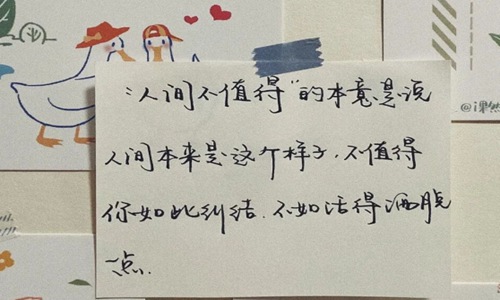 “人间不值得”的本意是说
人间本来是这个样子,不值得
你如此纠结.不如活得洒脱
一点.